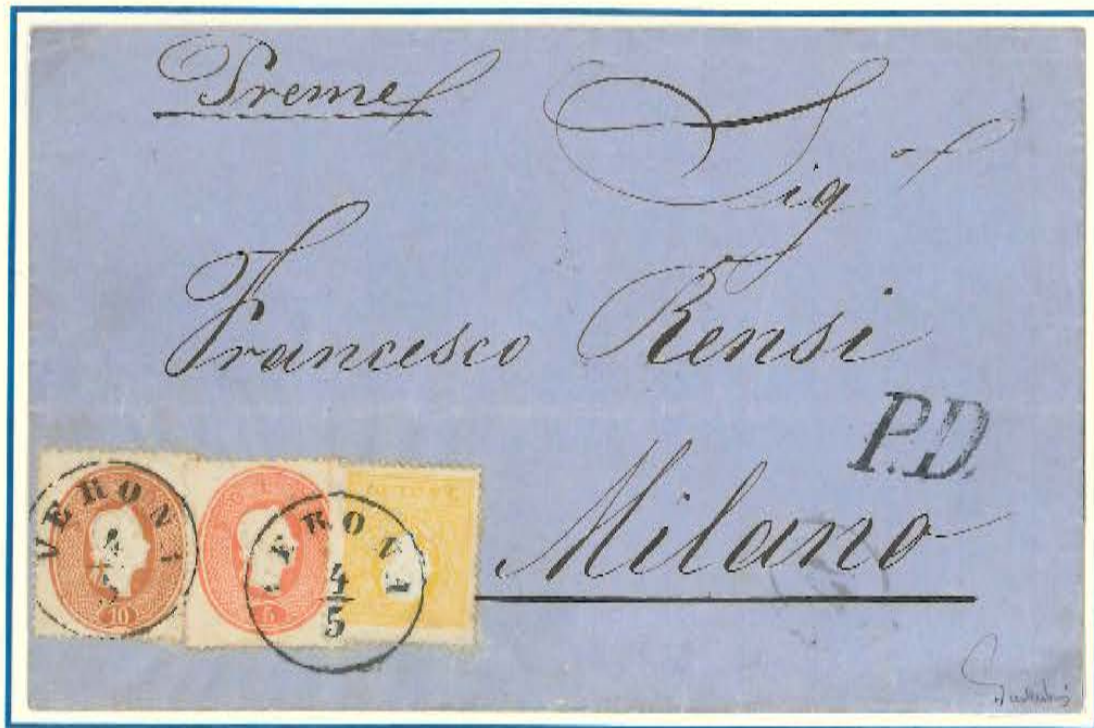 Preme
Sig
Francesco Rensi
P.D.
Milano
VERONA
4
5
10
5
VERONA
4
5